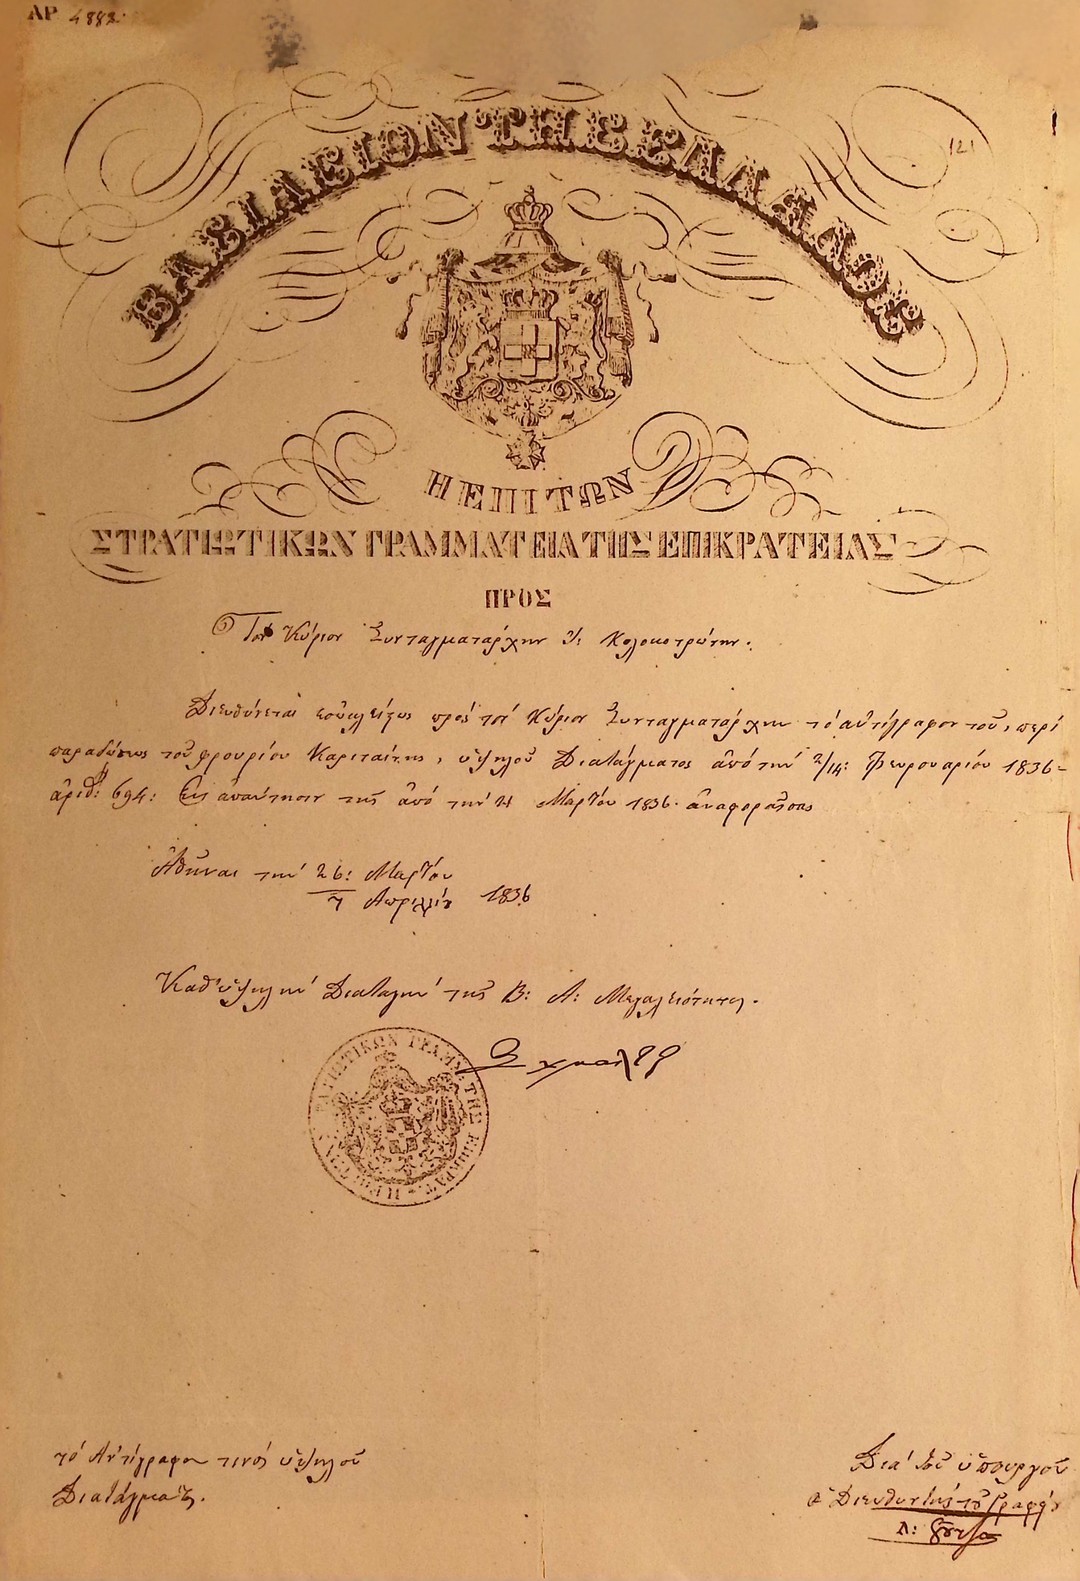 ΑΡ 4883.
121
ΒΑΣΙΛΕΙΟΝ ΤΗΣ ΕΛΛΑΔΟΣ
Η ΕΠΙ ΤΩΝ
ΣΤΡΑΤΙΩΤΙΚΩΝ ΓΡΑΜΜΑΤΕΙΑ ΤΗΣ ΕΠΙΚΡΑΤΕΙΑΣ
ΠΡΟΣ
Τον Κύριον Συνταγματάρχην Κολοκοτρώνην.
Διευθύνεται πρός τόν Κύριον Συνταγματάρχην τό ἀντίγραφον τοῦ, περί
παραδώσεως τοῦ φρουρίου Καριταίνης, ὑψηλοῦ Διατάγματος ἀπό τήν 2/14: Φευρουαρίου 1836-
ἀριθ: 694: Εἰς ἀπάντησιν τῆς ἀπό τήν 21 Μαρτίου 1836. ἀναφορᾶς σας
Ἀθῆναι τήν 26: Μαρτίου
7 Ἀπριλίου 1836
Καθ' ὑψηλήν Διαταγήν τῆς Β: Α: Μεγαλειότητος.
Σχμαλτσ
Η ΕΠΙ ΤΩΝ ΣΤΡΑΤΙΩΤΙΚΩΝ ΓΡΑΜΜ. ΤΗΣ ΕΠΙΚΡΑΤ.
τό Ἀντίγραφον τινός ὑψηλοῦ
Διατάγματος.
Διά τοῦ ὑπουργοῦ
ὁ Διευθυντής τοῦ Γραφείου